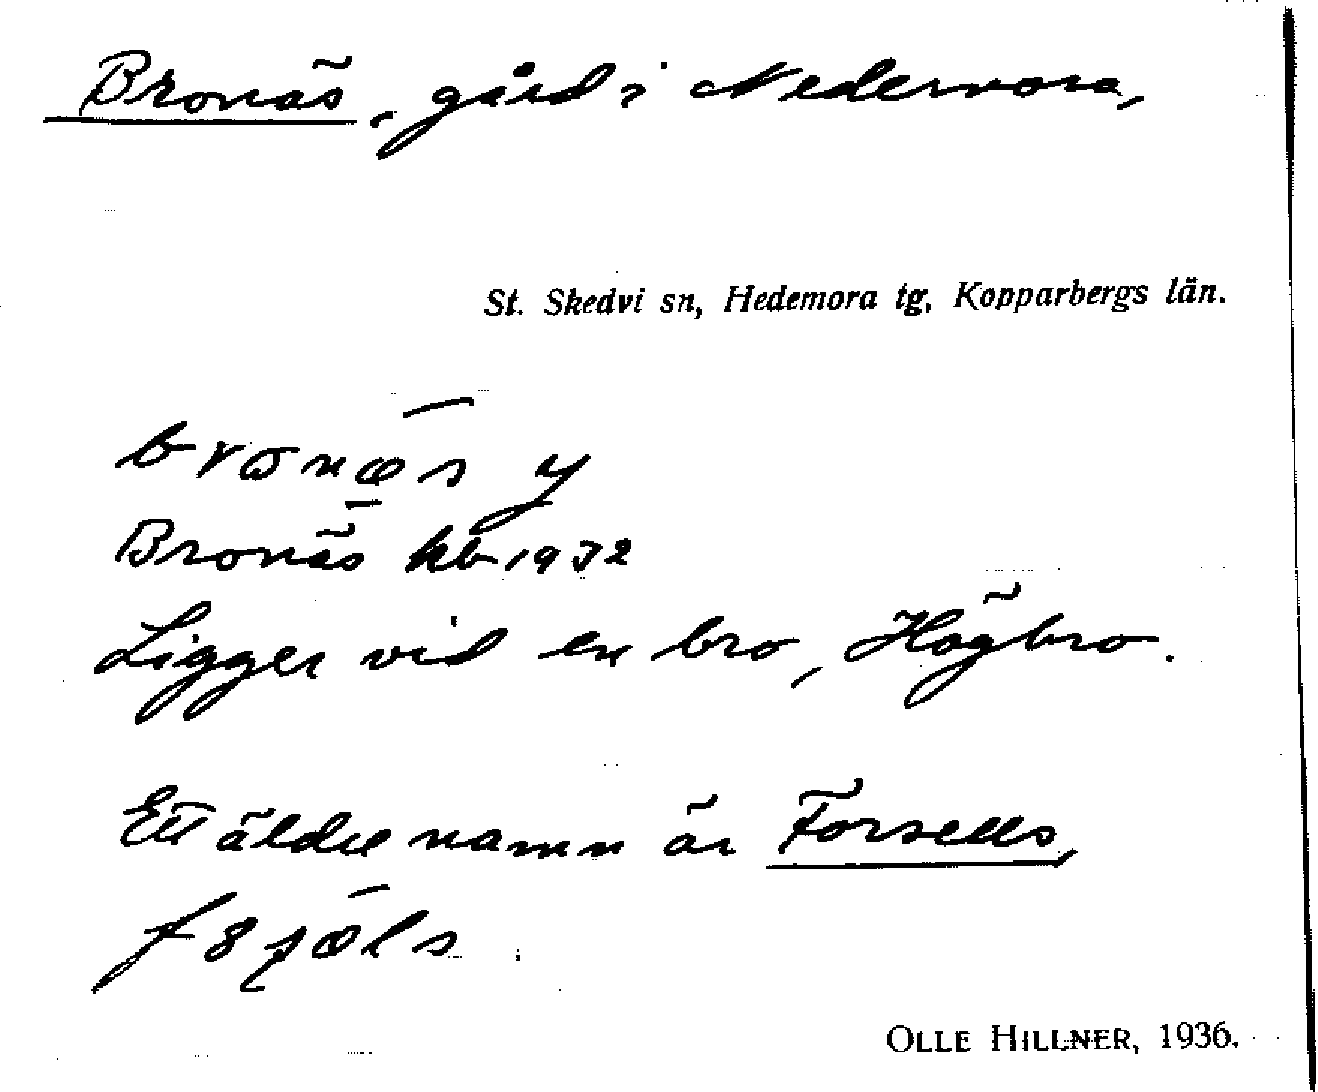 Bronäs, gård i Nedernora,
St. Skedvi sn, Hedemora tg, Kopparbergs län.
Bronäs kb 1932
Ligger vid en bro, Högbro.
Ett äldre namn är Forsells,
OLLE HILLNER, 1936.